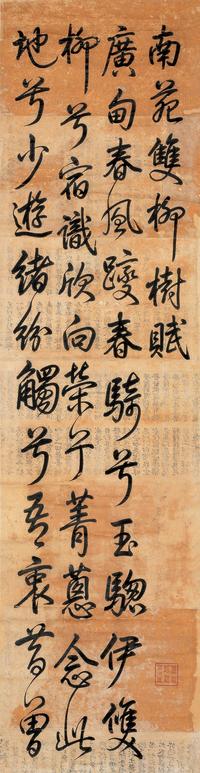 南苑雙柳樹賦
廣甸春風躞春騎兮玉驄伊雙
柳兮宿識欣向榮兮菁蔥念此
地兮少遊緒紛觸兮吾衷昔曾